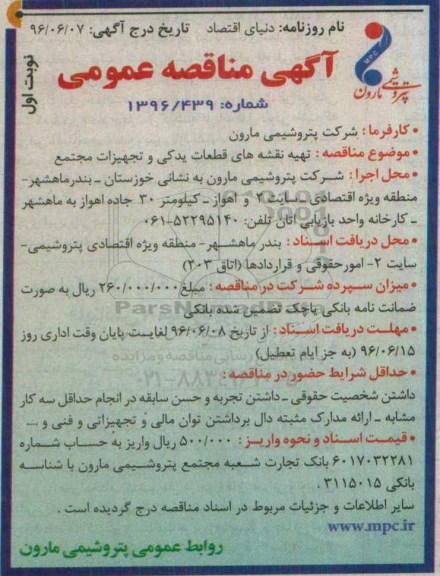 نام روزنامه: دنیای اقتصاد تاریخ درج آگهی: ۹۶/۰۶/۰۷
MPC
پتروشیمی مارون
آگهی مناقصه عمومی
نوبت اول
شماره: ۱۳۹۶/۴۳۹
• کارفرما: شرکت پتروشیمی مارون
• موضوع مناقصه: تهیه نقشه های قطعات یدکی و تجهیزات مجتمع
• محل اجرا: شرکت پتروشیمی مارون به نشانی خوزستان ـ بندرماهشهر-
منطقه ویژه اقتصادی ـ سایت ۲ و اهواز ـ کیلومتر ۳۰ جاده اهواز به ماهشهر
ـ کارخانه واحد بازیابی اتان تلفن: ۵۲۲۹۵۱۴۰-۰۶۱
• محل دریافت اسناد: بندر ماهشهر- منطقه ویژه اقتصادی پتروشیمی-
سایت ۲- امورحقوقی و قراردادها (اتاق ۲۰۳)
• میزان سپرده شرکت در مناقصه: مبلغ ۲۶۰/۰۰۰/۰۰۰ ریال به صورت
ضمانت نامه بانکی یا چک تضمین شده بانکی
• مهلت دریافت اسناد: از تاریخ ۹۶/۰۶/۰۸ لغایت پایان وقت اداری روز
۹۶/۰۶/۱۵ (به جز ایام تعطیل)
• حداقل شرایط حضور در مناقصه:
داشتن شخصیت حقوقی ـ داشتن تجربه و حسن سابقه در انجام حداقل سه کار
مشابه ـ ارائه مدارک مثبته دال برداشتن توان مالی و تجهیزاتی و فنی و ....
• قیمت اسناد و نحوه واریز: ۵۰۰/۰۰۰ ریال واریز به حساب شماره
۶۰۱۷۰۳۲۲۸۱ بانک تجارت شعبه مجتمع پتروشیمی مارون با شناسه
بانکی ۳۱۱۵۰۱۵ .
سایر اطلاعات و جزئیات مربوط در اسناد مناقصه درج گردیده است .
www.mpc.ir
روابط عمومی پتروشیمی مارون